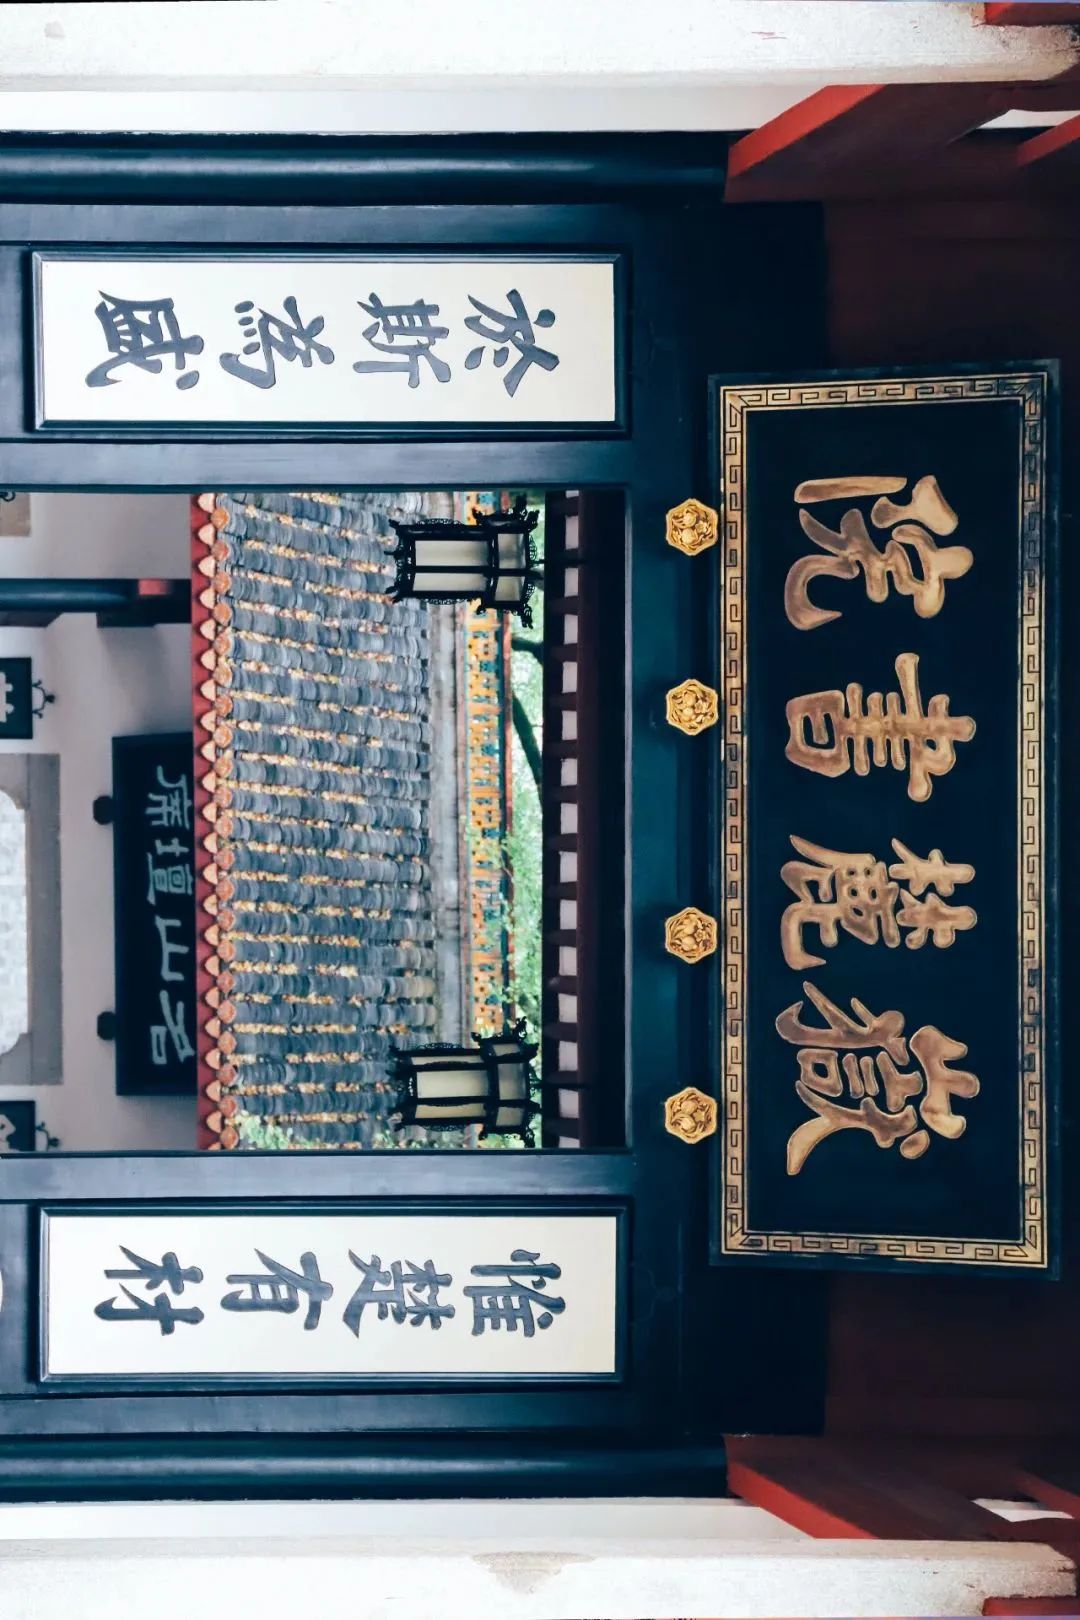 嶽麓書院
惟楚有材
於斯為盛
名山壇席